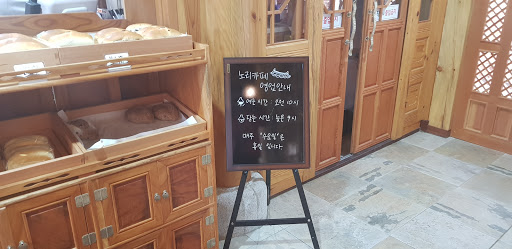 노리카페
영업안내
여는시간: 오전 10시
닫는시간: 늦은 9시
매주 "수요일"은
휴일 입니다